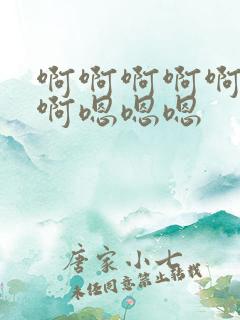 啊啊啊啊啊
啊嗯嗯嗯
唐家小七
未经同意禁止转载